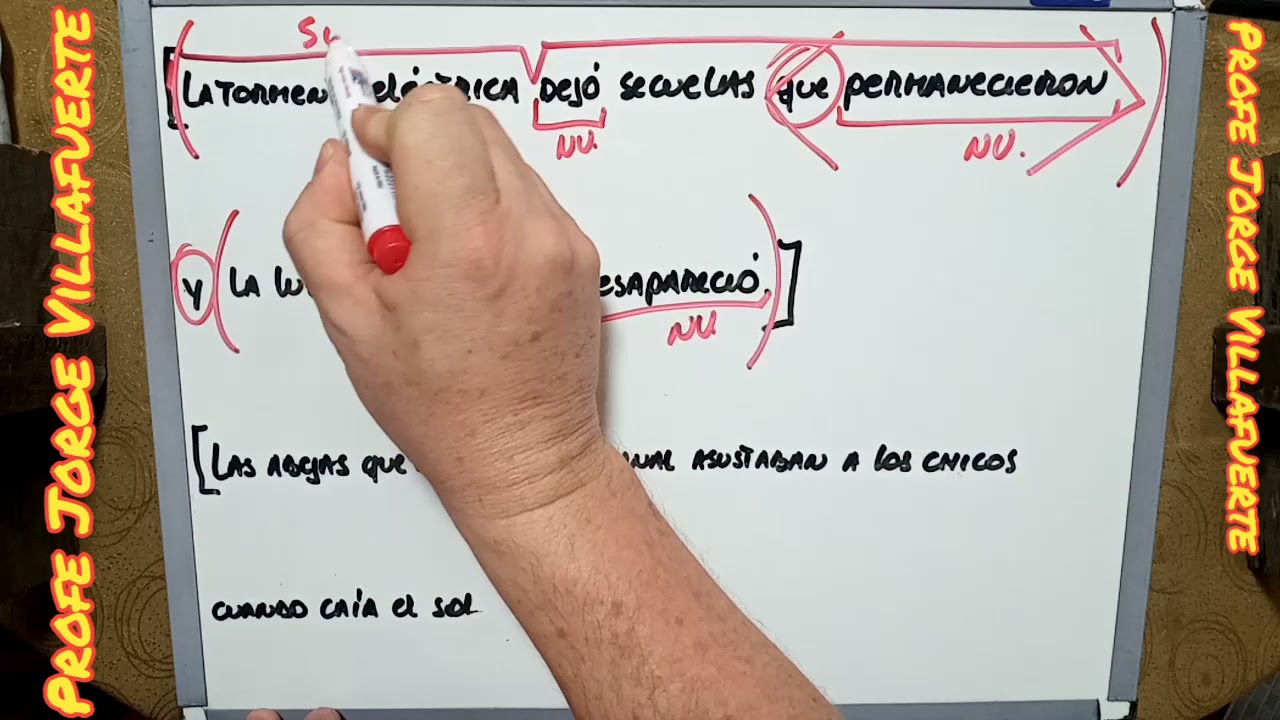 PROFE JORGE VILLAFUERTE
SU
[(LA TORMEN ELÉCTRICA DEJÓ SECUELAS <QUE PERMANECIERON>)
NV. NV.
Y (LA DESAPARECIÓ.)]
NV.
[LAS ABEJAS QUE ASUSTABAN A LOS CHICOS
CUANDO CAÍA EL SOL
PROFE JORGE VILLAFUERTE